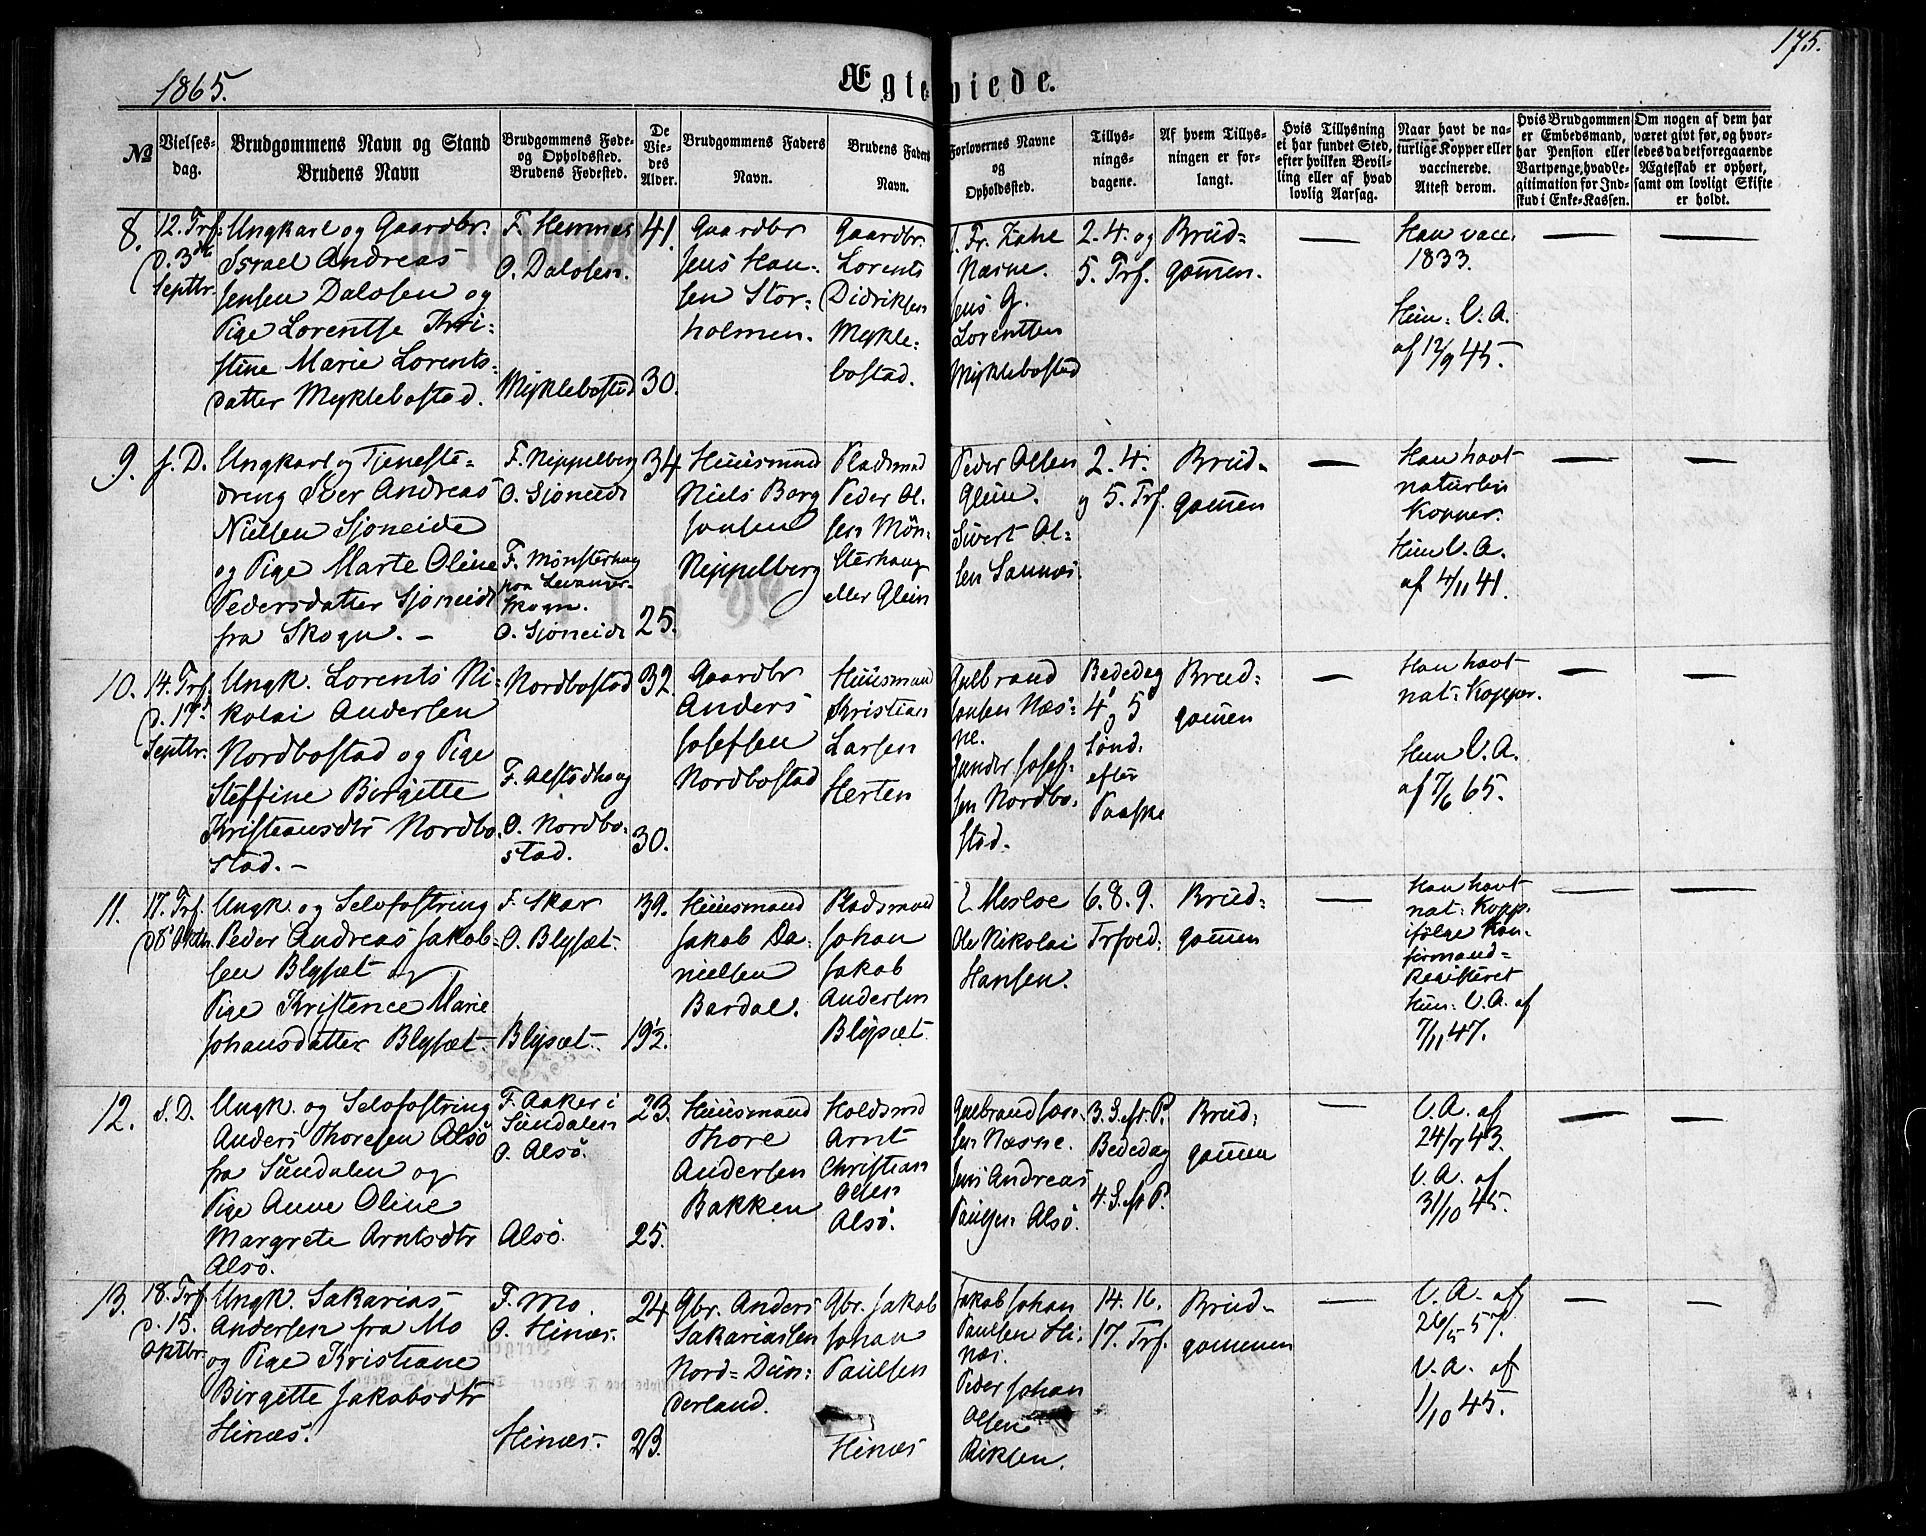 1865.
Ægteviede.
175.
№
Vielses-
dag.
Brudgommens Navn og Stand
Brudens Navn
Brudgommens Føde-
og Opholdssted.
Brudens Fødested.
De
Vie-
des
Alder.
Brudgommens Faders
Navn.
Brudens Faders
Navn.
Forlovernes Navne
og
Opholdssted.
Tillys-
nings-
dagene.
Af hvem Tillys-
ningen er for-
langt.
Hvis Tillysning
ei har fundet Sted,
efter hvilken Bevil-
ling eller af hvad
lovlig Aarsag.
Naar havt de na-
turlige Kopper eller
vaccinerede.
Attest derom.
Hvis Brudgommen
er Embedsmand,
har Pension eller
Vartpenge, hvad Le-
gitimation for Ind-
skud i Enke-Kassen.
Om nogen af dem har
været givt før, og hvor-
ledes da det foregaaende
Ægteskab er ophørt,
samt om lovligt Skifte
er holdt.
8.
12. Trf.
d. 3die
Septbr.
Ungkarl og Gaardbr.
Israel Andreas
Jensen Dalosen og
Pige Lorentse Kri-
stine Marie Lorents-
datter Myklebostad.
F. Hemnæs
O. Dalosen.
Myklebostad
41.
30.
Gaardbr
Jens Han-
sen Stor-
holmen.
Gaardbr.
Lorents
Didriksen
Mykle-
bostad.
Fr. Zahl
Næsne.
Jens G.
Lorentsen
Myklebostad
2. 4. og
5. Trf.
Brud-
gommen.
—
Han vacc.
1833.
Hun: V. A.
af 12/9 45.
—
—
9.
s. D.
Ungkarl og Tjeneste-
dreng Iver Andreas
Nielsen Sjoneide
og Pige Marte Oline
Pedersdatter Sjoneide
fra Skogn. —
F. Nippelberg
O. Sjoneide
F. Mønsterhaug
paa Levanger-
Skogn.
O. Sjoneide
34
25.
Huusmand
Niels Borg
Jonsen
Nippelberg
Pladsmd
Peder Ol-
sen Møn-
sterhaug
eller Glein
Peder Olsen
Glein.
Sivert Ol-
sen Sannæs.
2. 4.
og 5. Trf.
Brud-
gommen
—
Han havt
naturlige
Kopper.
Hun V. A.
af 4/11 41.
—
—
10.
14. Trf.
d. 17d
Septbr.
Ungk. Lorents Ni-
kolai Andersen
Nordbostad og Pige
Steffine Birgitte
Kristiansdtr Nordbo-
stad. —
Nordbostad
F. Alstadhaug
O. Nordbo-
stad.
32.
30.
Gaardbr
Anders
Josefsen
Nordbostad
Huusmand
Kristian
Larsen
Herten
Gulbrand
Jonsen Næs-
ne.
Gunder Josef-
sen Nordbo-
stad.
Bededag
4 og 5
Sønd.
efter
Paaske
Brud-
gommen
—
Han havt
nat: Kopper.
Hun V. A.
af 7/6 65.
—
—
11.
17. Trf.
d 8 Oktbr.
Ungk. og Selvfostring
Peder Andreas Jakob-
sen Blysæt og
Pige Kristence Marie
Johansdatter Blysæt
F. Skar
O. Blysæt.
Blysæt.
39.
19½.
Huusmand
Jakob Da-
nielsen
Bardal.
Pladsmand
Johan
Jakob
Andersen
Blysæt
E Mesloe
Ole Nikolai
Hansen.
6. 8. 9.
Trfoed:
Brud-
gommen
—
Han havt
nat: Kopp.
ifølge Kon-
firmand-
Registeret
Hun: V. A. af
7/11 47.
—
—
12.
s. D.
Ungk. og Selvfostring
Anders Thoresen Alsø
fra Sundalen og
Pige Anne Oline
Margrete Arntsdtr
Alsø.
F. Aaker i
Sundalen
O. Alsø.
Alsø.
23.
25.
Huusmand
Thore
Andersen
Bakken
Holdsmd
Arnt
Christian
Olsen
Alsø.
Gulbrand Jon-
sen Næsne.
Jens Andreas
Paulsen Alsø.
3. S. eft. P.
Bededag
4. S. eft P.
Brud-
gommen
—
V. A. af
24/7 43.
V. A. af
31/10 45.
—
—
13.
18. Trf.
d. 15.
Oktbr.
Ungk. Sakarias
Andersen fra Mo
og Pige Kristiane
Birgette Jakobsdtr
Hinæs.
F. Mo.
O. Hinæs.
Hinæs.
24.
23.
Gbr. Anders
Sakariassen
Nord-Dun-
derland.
Gbr. Jakob
Johan
Paulsen
Hinæs
Jakob Johan
Paulsen Hi-
næs.
Peder Johan
Olsen
14. 16.
17. Trf.
Brud-
gommen
—
V. A. af
26/5 57.
V. A. af
1/10 45.
—
—